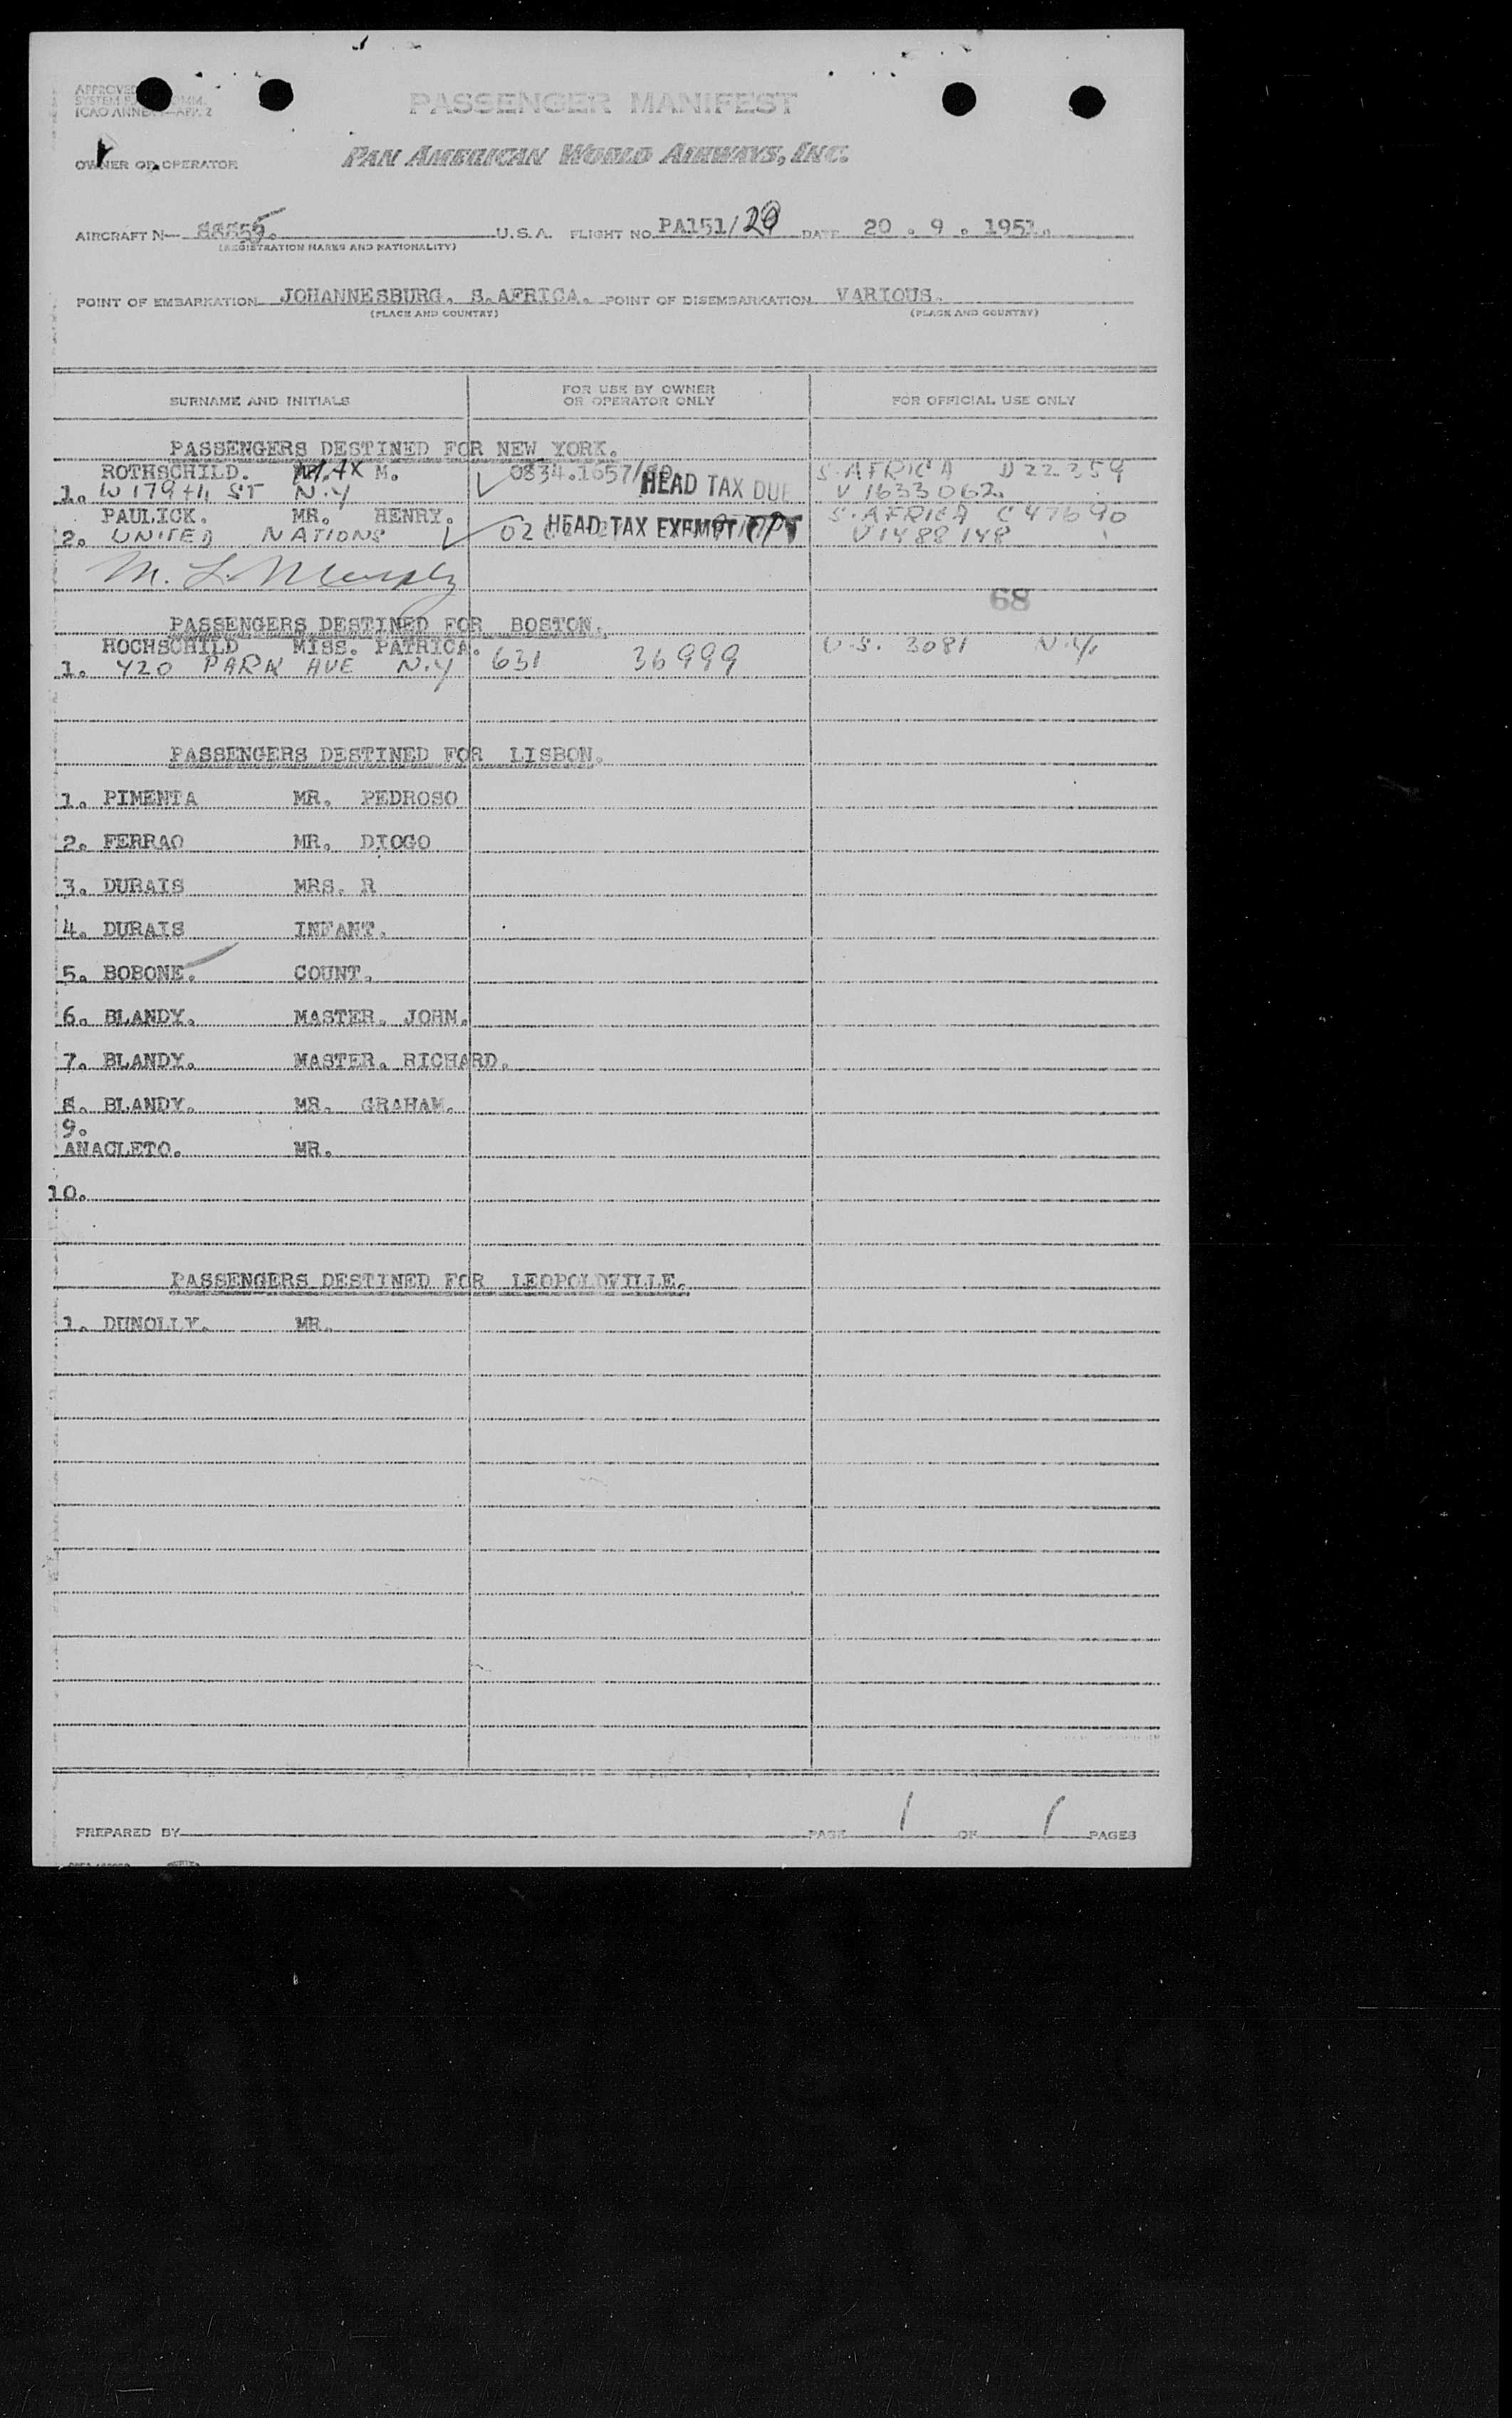 PASSENGER MANIFEST
OWNER OR OPERATOR PAN AMERICAN WORLD AIRWAYS, INC.
AIRCRAFT N— U.S.A. FLIGHT NO. PA151/20 DATE 20 . 9 . 1951.
(REGISTRATION MARKS AND NATIONALITY)
POINT OF EMBARKATION JOHANNESBURG. S.AFRICA. POINT OF DISEMBARKATION VARIOUS.
(PLACE AND COUNTRY) (PLACE AND COUNTRY)
SURNAME AND INITIALS FOR USE BY OWNER OR OPERATOR ONLY FOR OFFICIAL USE ONLY
PASSENGERS DESTINED FOR NEW YORK.
ROTHSCHILD. MAX M. 0834.1657/ HEAD TAX DUE S.AFRICA D22359
1. W 179th ST N.Y V 1633062
PAULICK. MR. HENRY. S.AFRICA C47690
2. UNITED NATIONS 02 HEAD TAX EXEMPT V1488148
M. L. Murphy
68
PASSENGERS DESTINED FOR BOSTON.
HOCHSCHILD MISS. PATRICA. U.S. 3081 N.Y.
1. 420 PARK AVE N.Y 631 36999
PASSENGERS DESTINED FOR LISBON.
1. PIMENTA MR. PEDROSO
2. FERRAO MR. DIOGO
3. DURAIS MRS. R
4. DURAIS INFANT.
5. BOBONE. COUNT.
6. BLANDY. MASTER. JOHN.
7. BLANDY. MASTER. RICHARD.
8. BLANDY. MR. GRAHAM.
9.
ANACLETO. MR.
10.
PASSENGERS DESTINED FOR LEOPOLDVILLE.
1. DUNOLLY. MR.
PREPARED BY PAGE 1 OF 1 PAGES